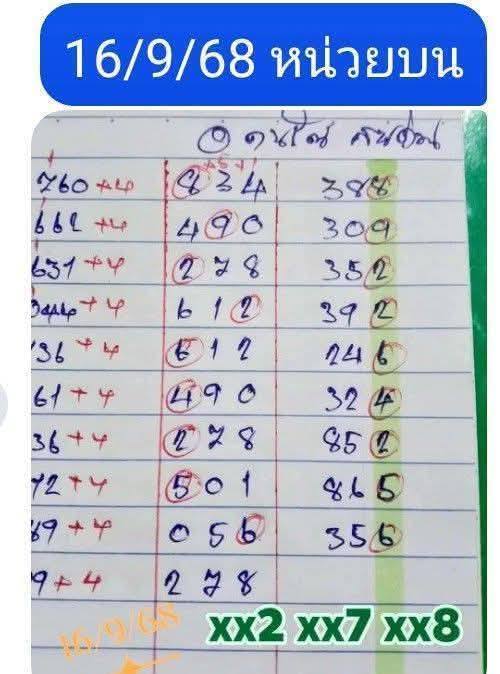 16/9/68 หน่วยบน
+5+1
760+4 834 388
662+4 490 309
631+4 278 352
344+4 612 392
36+4 612 246
61+4 490 324
36+4 278 852
72+4 501 865
89+4 056 356
9+4 278
16/9/68 xx2 xx7 xx8